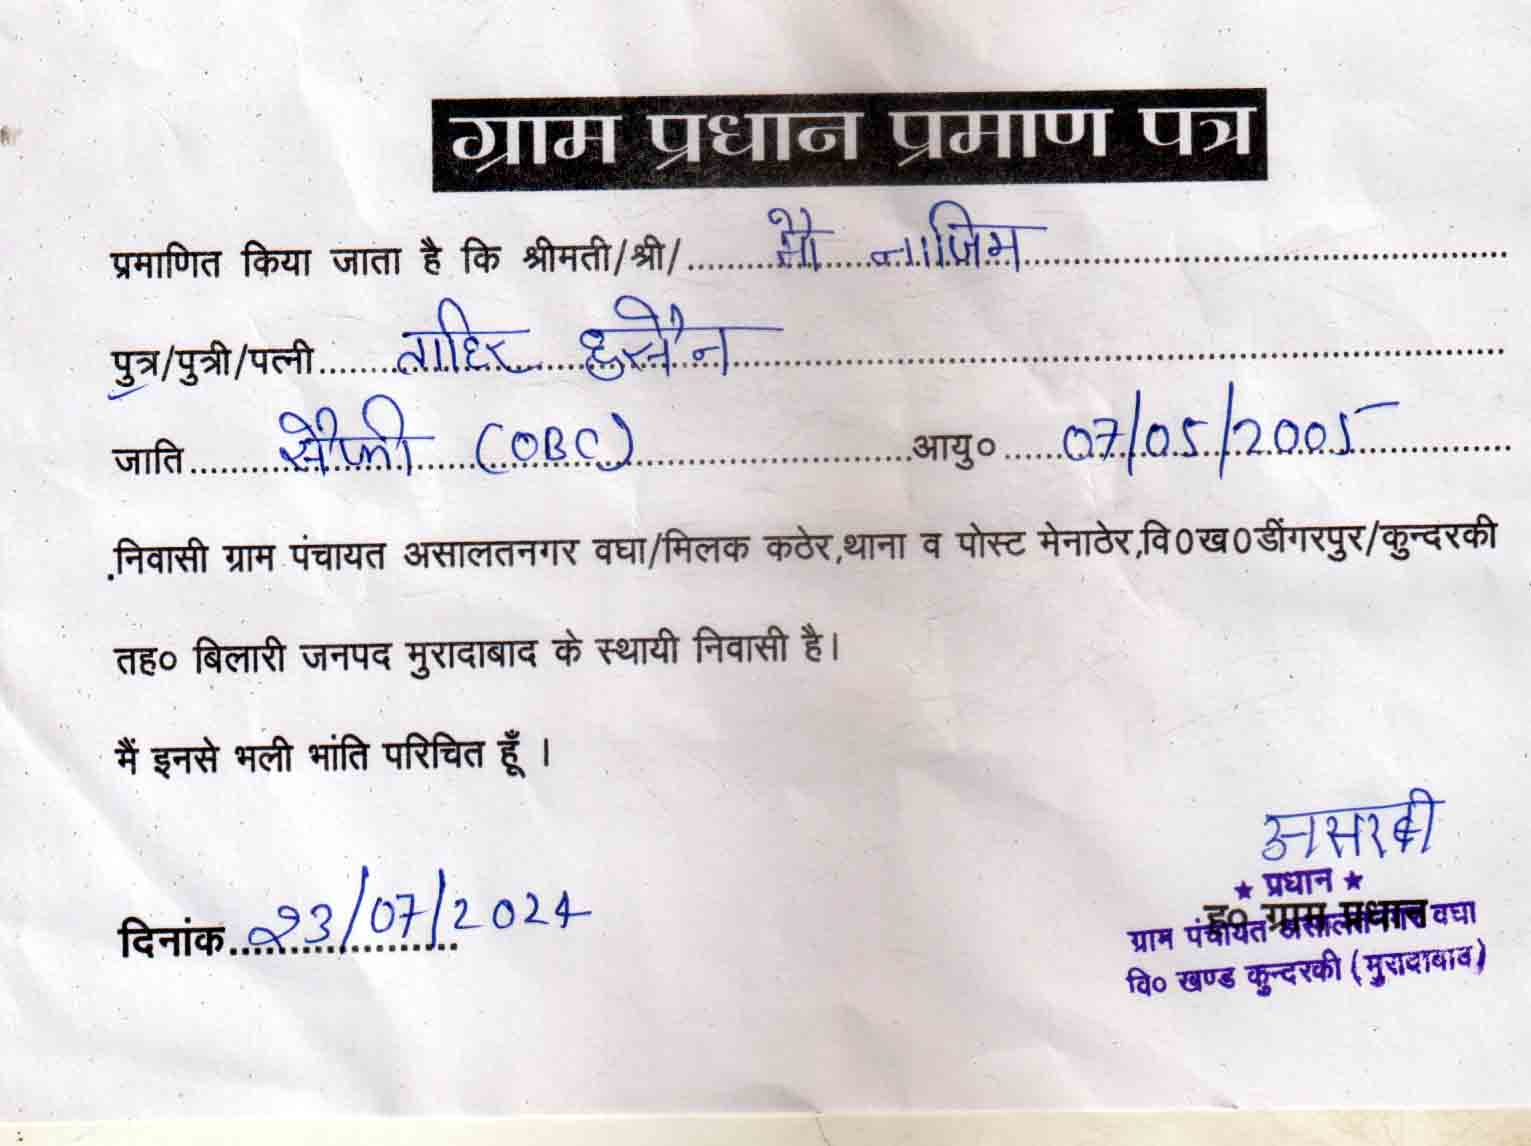 ग्राम प्रधान प्रमाण पत्र
प्रमाणित किया जाता है कि श्रीमती/श्री/.......मौ नाजिम.......
पुत्र/पुत्री/पत्नी.......ताहिर हुसैन.......
जाति.......सैफी (OBC).......आयु०.......07/05/2005.......
.निवासी ग्राम पंचायत असालतनगर वघा/मिलक कठेर,थाना व पोस्ट मेनाठेर,वि0ख0डींगरपुर/कुन्दरकी
तह० बिलारी जनपद मुरादाबाद के स्थायी निवासी है।
मैं इनसे भली भांति परिचित हूँ ।
असरफी
★ प्रधान ★
दिनांक.......23/07/2024
ह० ग्राम प्रधान
ग्राम पंचायत असालतनगर वघा
वि० खण्ड कुन्दरकी (मुरादाबाद)